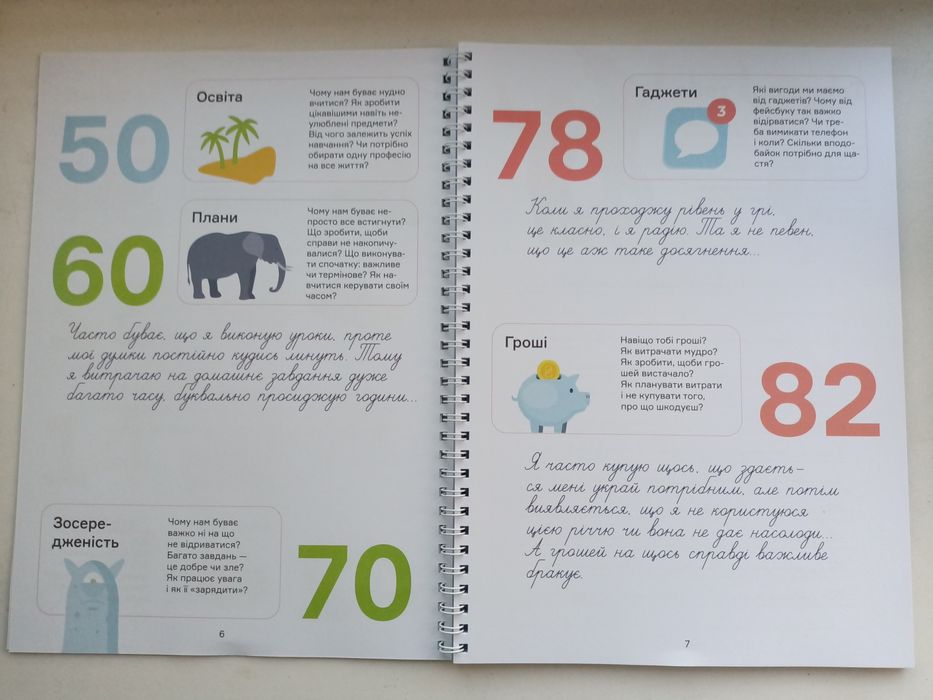 50
Освіта
Чому нам буває нудно
вчитися? Як зробити
цікавішими навіть не-
улюблені предмети?
Від чого залежить успіх
навчання? Чи потрібно
обирати одну професію
на все життя?
60
Плани
Чому нам буває не-
просто все встигнути?
Що зробити, щоби
справи не накопичу-
валися? Що виконува-
ти спочатку: важливе
чи термінове? Як на-
вчитися керувати своїм
часом?
Часто буває, що я виконую уроки, проте
мої думки постійно кудись линуть. Тому
я витрачаю на домашнє завдання дуже
багато часу, буквально просиджую години...
Зосере-
дженість
Чому нам буває
важко ні на що
не відриватися?
Багато завдань —
це добре чи зле?
Як працює увага
і як її «зарядити»?
70
6
78
Гаджети
3
Які вигоди ми маємо
від гаджетів? Чому від
фейсбуку так важко
відірватися? Чи тре-
ба вимикати телефон
і коли? Скільки вподо-
байок потрібно для ща-
стя?
Коли я проходжу рівень у грі,
це класно, і я радію. Та я не певен,
що це аж таке досягнення...
Гроші
Навіщо тобі гроші?
Як витрачати мудро?
Як зробити, щоби гро-
шей вистачало?
Як планувати витрати
і не купувати того,
про що шкодуєш?
82
Я часто купую щось, що здаєть-
ся мені украй потрібним, але потім
виявляється, що я не користуюся
цією річчю чи вона не дає насолоди...
А грошей на щось справді важливе
бракує.
7